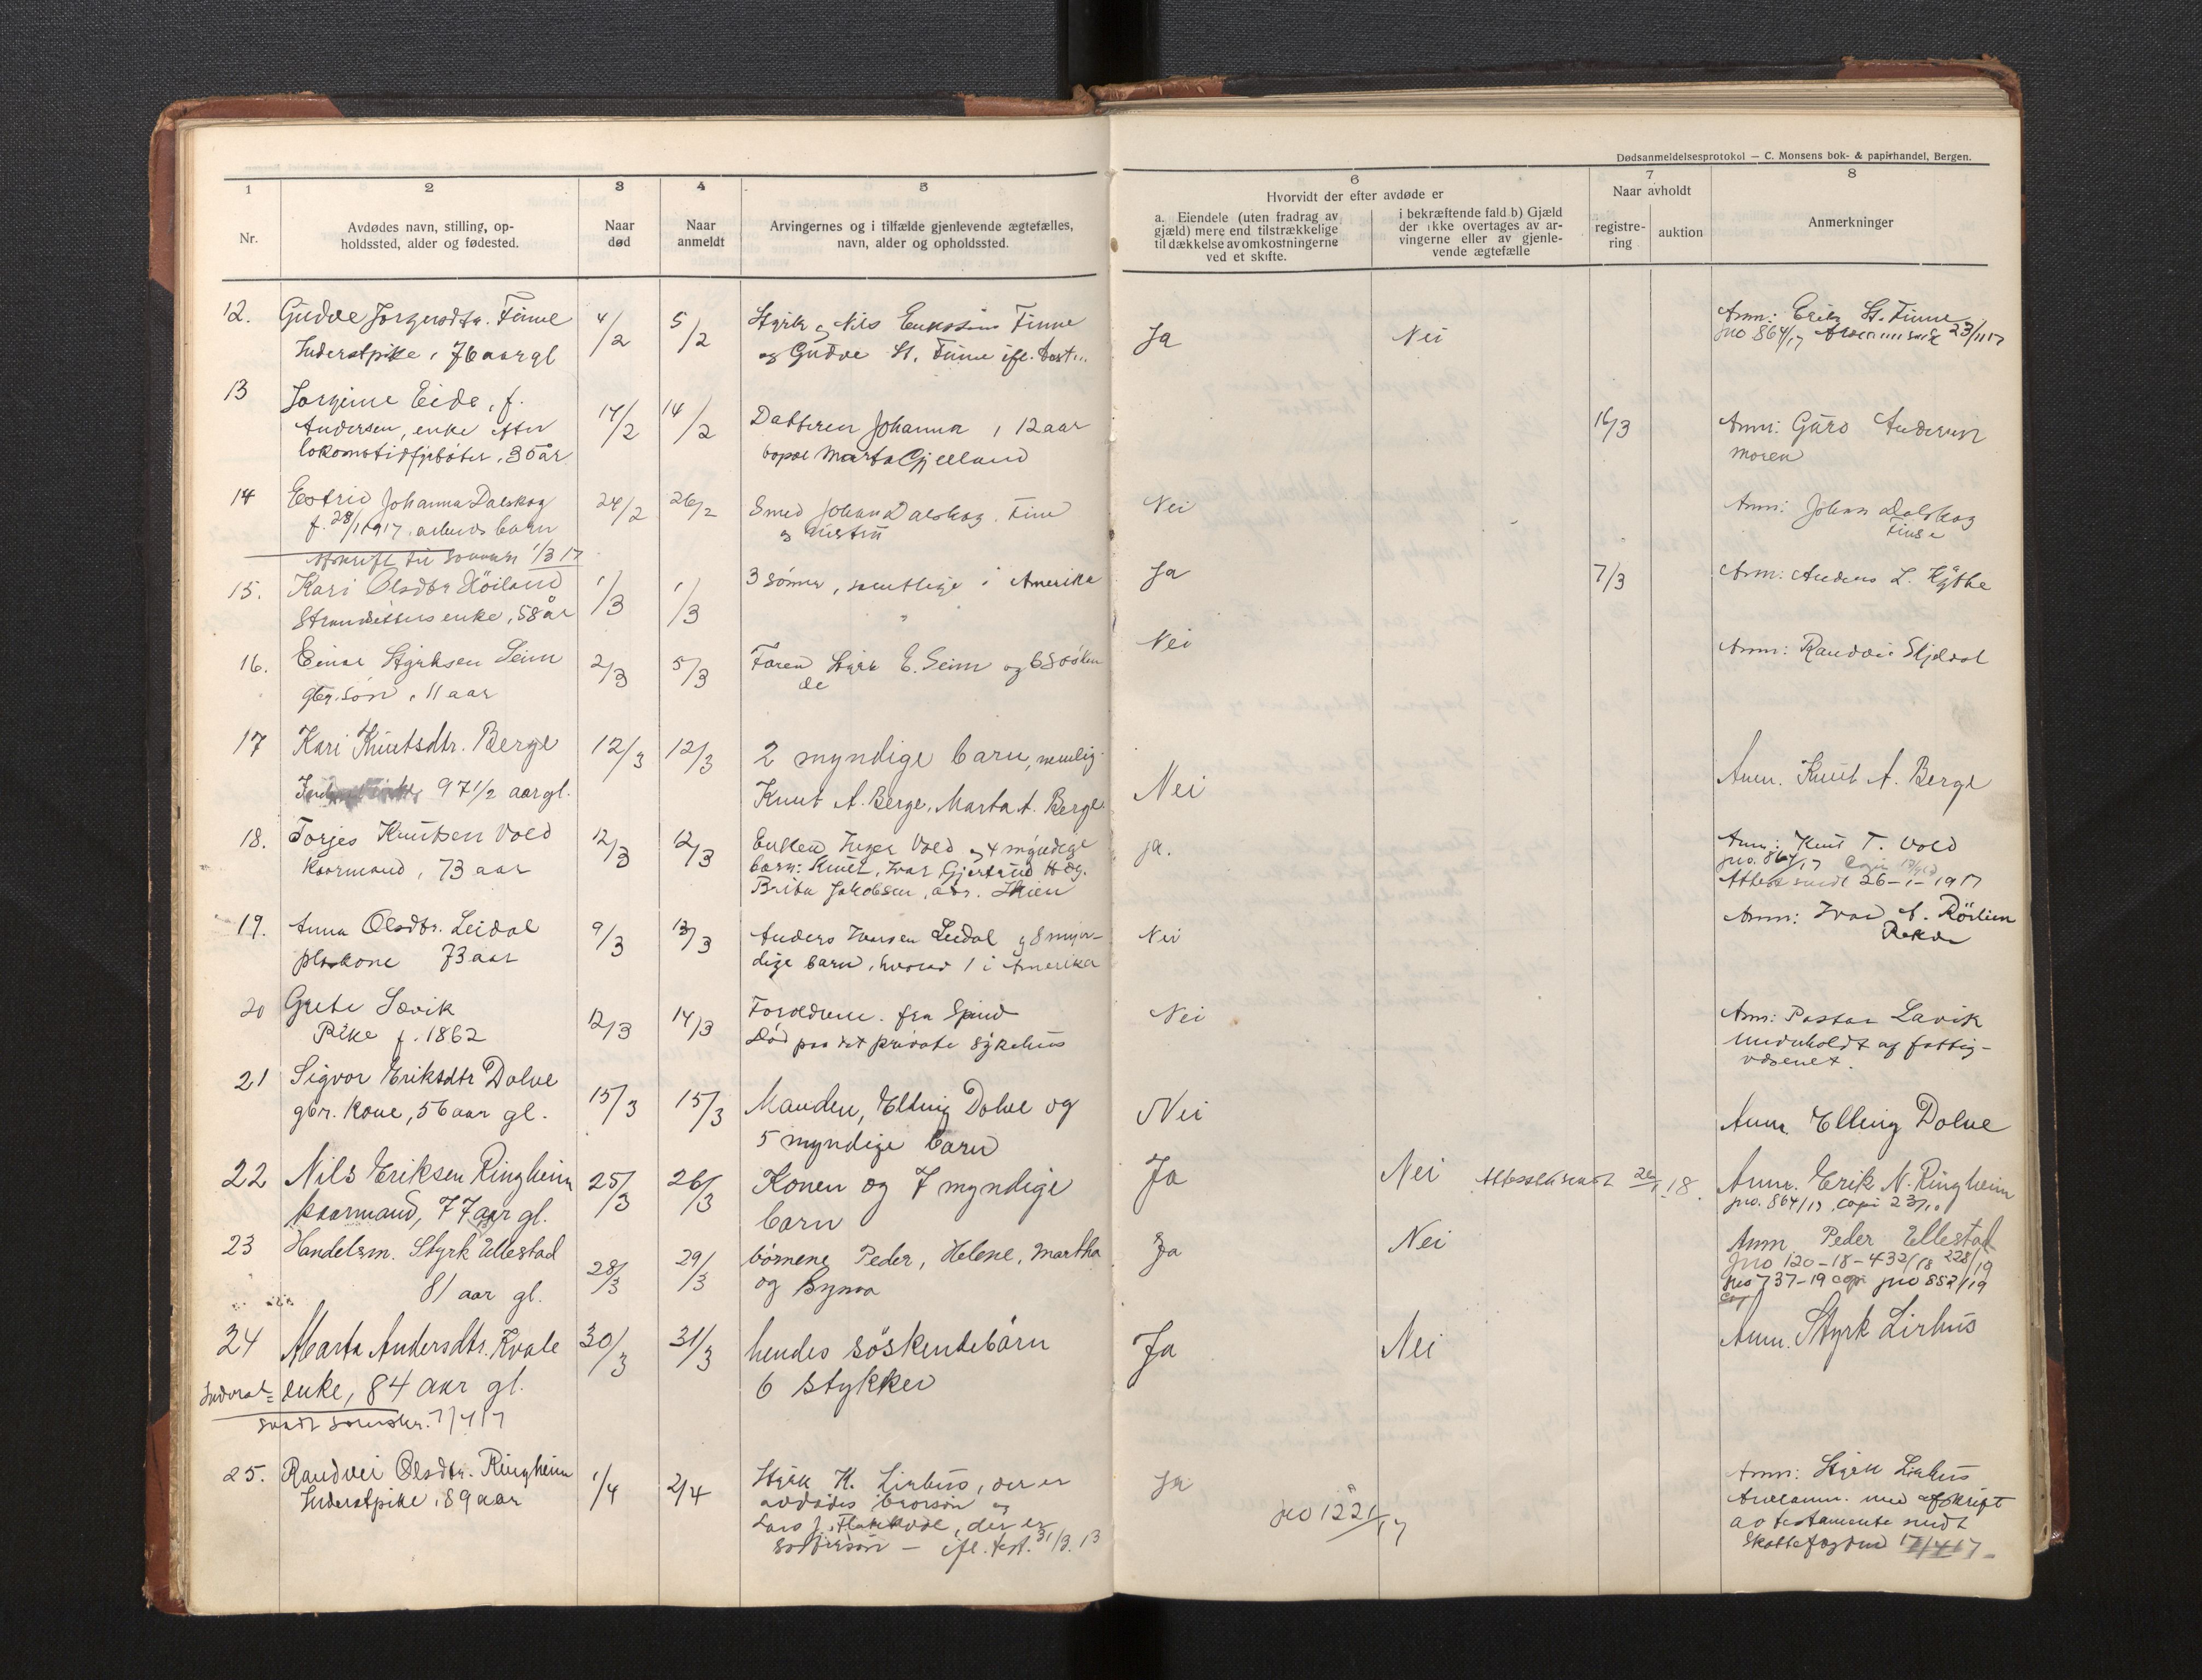 Dødsanmeldelsesprotokol — C. Monsens bok- & papirhandel, Bergen.
1
2
3
4
5
6
7
8
Nr.
Avdødes navn, stilling, op-
holdssted, alder og fødested.
Naar
død
Naar
anmeldt
Arvingernes og i tilfælde gjenlevende ægtefælles,
navn, alder og opholdssted.
Hvorvidt der efter avdøde er
a. Eiendele (uten fradrag av
gjæld) mere end tilstrækkelige
til dækkelse av omkostningerne
ved et skifte.
i bekræftende fald b) Gjæld
der ikke overtages av ar-
vingerne eller av gjenle-
vende ægtefælle
Naar avholdt
registre-
ring
auktion
Anmerkninger
12.
Gudve Jørgensdtr. Finne
Inderstpike, 76 aar gl
4/2
5/2
Styrk og Nils Finne
og Gudve St. Finne ifl. test.
Ja
Nei
Anm: Erik St. Finne
jno 864/17 23/11 17
13
Jorgine Eide, f.
Andersen, enke efter
lokomotivfyrbøter, 35 år
14/2
14/2
Datteren Johanna, 12 aar
Marta Gjelland
16/3
Anm: Guro Andersen
moren
14
Estrid Johanna Dalskog
f. 28/1 1917, barn
Avskrift til 1/3 17
24/2
26/2
Smed Johan Dalskog
og hustru
Nei
Anm: Johan Dalskog
Finse
15.
Kari Olsdtr Höiland
Strandsitters enke, 58 år
1/3
1/3
3 sönner, samtlige i Amerika
Ja
7/3
Anm: Anders L.
16.
Einar Styrksen Seim
gbr. sön, 11 aar
2/3
5/3
Faren Styrk E. Seim og 6 sösken
de
Nei
Anm: Randvei
17
Kari Knutsdtr. Berge
97 1/2 aar gl.
12/3
12/3
2 myndige barn, nemlig
Knut A. Berge, Marta A. Berge
Nei
Anm. Knut A. Berge
18.
Torjes Knutsen Vold
kaarmand, 73 aar
12/3
12/3
Enken Inger Vold og 4 myndige
barn: Knut, Ivar, Gjertrud og
Brita Jakobsen, adr. Skien
ja.
Anm: Knut T. Vold
jno. 864/17
sendt 26-1-19
19.
Anna Olsdtr. Leidal
plskone 73 aar
9/3
13/3
Anders Iversen Leidal og 8 myn-
dige barn, hvorav 1 i Amerika
Nei
Anm: Ivar A.
20
Grete Lavik
Pike f. 1862
12/3
14/3
Forældrene. fra
Död paa det private sykehus
Nei
Anm: Pastor Lavik
Underholdt af fattig-
væsenet.
21
Sigvor Eriksdtr Dolve
gbr. kone, 56 aar gl.
15/3
15/3
Manden, Elling Dolve og
5 myndige barn
Nei
Anm. Elling Dolve
22
Nils Eriksen Ringheim
kaarmand, 77 aar gl.
25/3
26/3
Konen og 7 myndige
barn
Ja
Nei
Attest sendt 26/1 18.
Anm. Erik N. Ringheim
jno. 864/17 copi
23
Handelsm. Styrk Ullestad
81 aar gl.
28/3
29/3
börnene Peder, Helene, Martha
og Synva
Ja
Nei
Anm Peder Ullestad
jno 120-18-432/18 228/19
jno 737-19 copi jno 852/19
24
Marta Andersdtr. Kvale
Inderst=
enke, 84 aar gl.
sendt
30/3
31/3
hendes söskendebarn
6 stykker
Ja
Nei
Anm. Styrk Lirhus
25.
Randvei Olsdtr. Ringheim
Inderstpike, 89 aar
1/4
2/4
Styrk K. Lirhus, der er
avdödes brorsön og
Lars J., der er
sösterson — ifl. test. 31/3. 13
Ja
jno 1221/17
Anm: Styrk Lirhus
med afskrift
av testamente sendt
Skattefogden 17/4 17